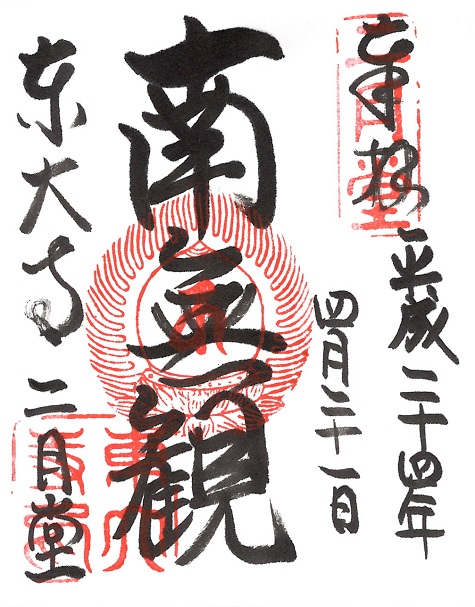 奉拝
平成二十四年
四月二十一日
南無観
東大寺 二月堂
二月堂